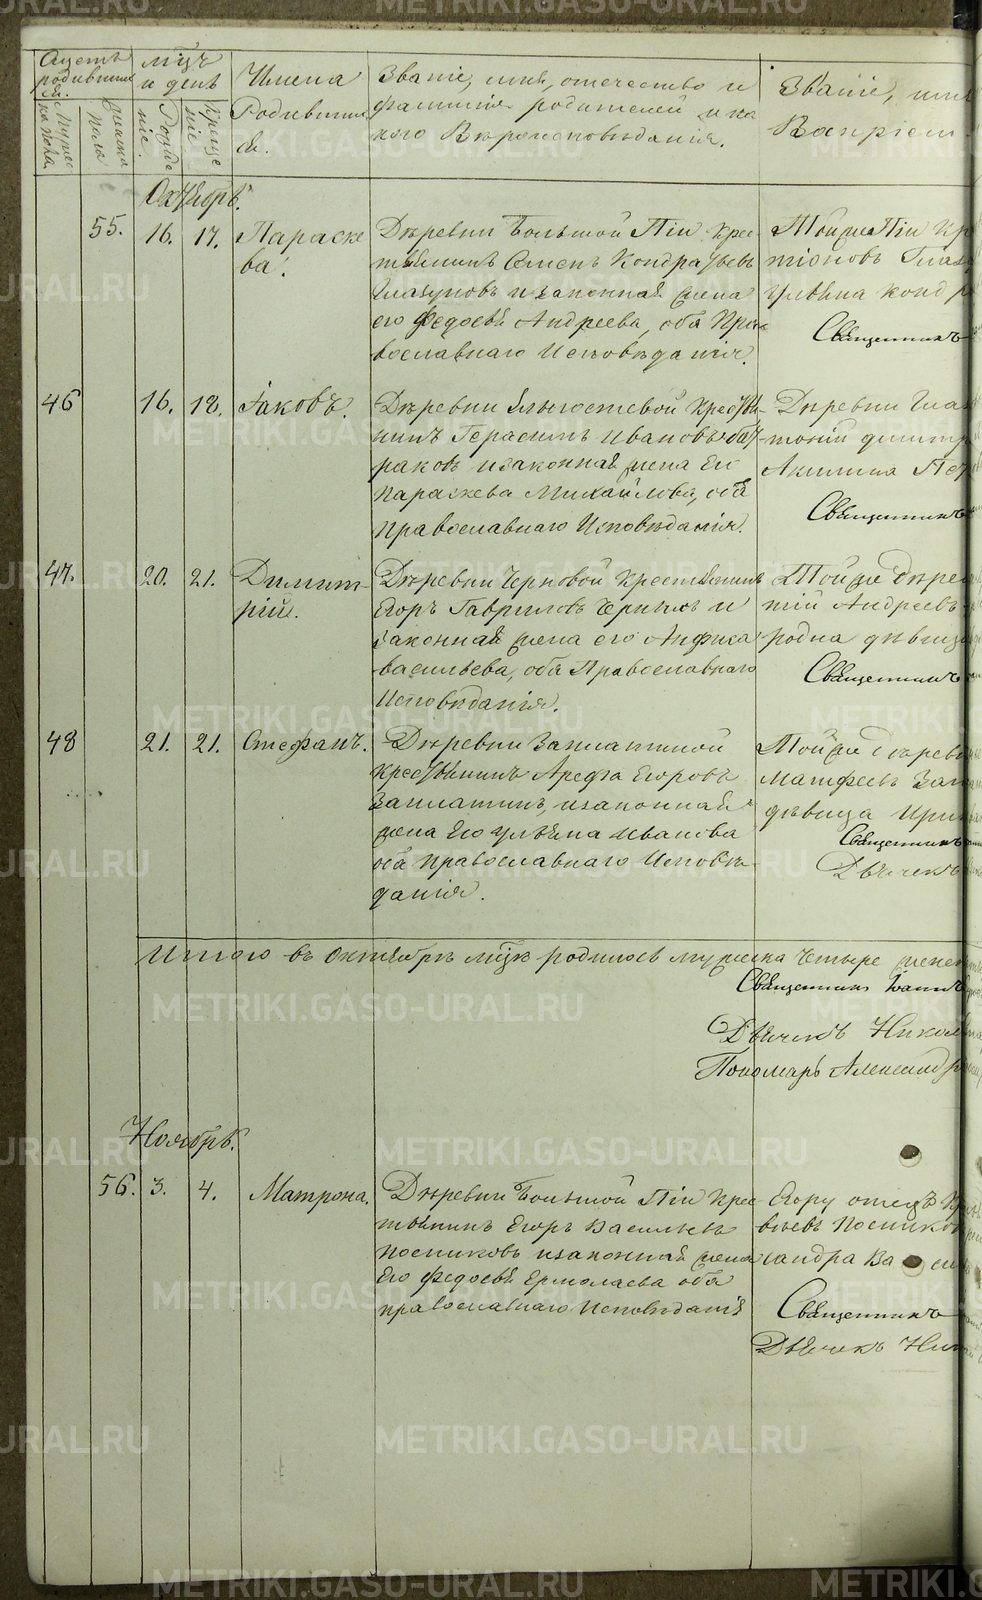 Счетъ родившихся
мужеска пола
женска пола
мѣсяцъ и день
Рожденіе.
Крещеніе
Имена
Родившихся.
Званіе, имя, отечество и
фамилія родителей и ка
кого Вѣроисповѣданія.
Званіе, имя
Воспріем
Октябрь.
55. 16. 17. Параске
ва.
Деревни Большой Тіи Крес
тьянинъ Семенъ Кондратьевъ
Глазуновъ и законная жена
его Федосья Андреева, оба Пра
вославнаго Исповѣданія.
Той же Тіи Кр
Священникъ
46 16. 18. Іаковъ.
нинъ Герасимъ Ивановъ
и законная жена Его
Параскева Михайлова, оба
Православнаго Исповѣданія.
Деревни
Акилина Пет
Священникъ
47. 20. 21. Димит
рій.
Деревни Черновой Крестьянинъ
Егоръ Гавриловъ Черныхъ и
законная жена его Анфиса
Васильева, оба Православнаго
Исповѣданія.
Той же дере
тій Андреевъ
родна дѣвица
Священникъ
48 21. 21. Стефанъ.
Деревни Заплатиной
Крестьянинъ Арефа Егоровъ
Заплатинъ, и законная
жена Его Ульяна Иванова
оба Православнаго Исповѣ
данія.
Той же дерев
Матфеевъ Зап
дѣвица Ири
Священникъ
Дьячекъ
Итого въ Октябрѣ мцѣ родилось мужеска Четыре женс
Священникъ Іоаннъ
Дьячекъ Никол
Пономарь Александр
Ноябрь.
56. 3. 4. Матрона.
Деревни Большой Тіи Крес
тьянинъ Егоръ Васильевъ
Посниковъ и законная жена
Его Федосья Ермолаева оба
Православнаго Исповѣданія
Егору отецъ Кр
Посников
сандра Ва
Священникъ
Дьячекъ Ник
METRIKI.GASO-URAL.RU